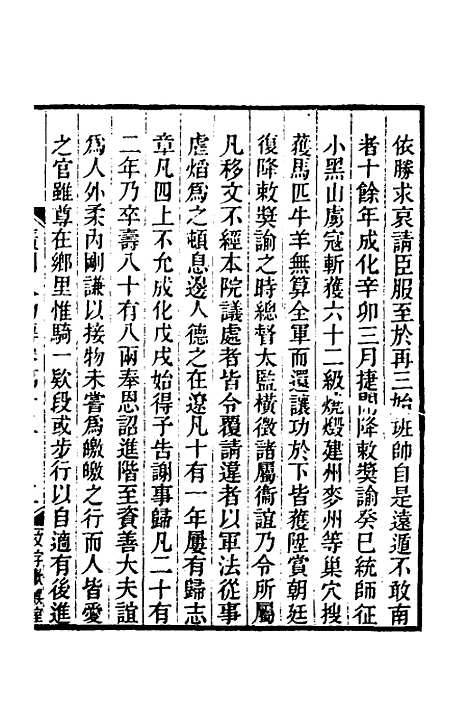 依勝求哀請臣服至於再三始班師自是遠遁不敢南
者十餘年成化辛卯三月捷聞降敕獎諭癸巳統師征
小黑山虜寇斬獲六十二級燒燬建州麥州等巢穴搜
獲馬匹牛羊無算全軍而還讓功於下皆獲陞賞朝廷
復降敕獎諭之時總督太監橫徵諸屬衞誼乃令所屬
凡移文不經本院議處者皆令覆請違者以軍法從事
虐焰爲之頓息邊人德之在遼凡十有一年屢有歸志
章凡四上不允成化戊戌始得予告謝事歸凡二十有
二年乃卒壽八十有八兩奉恩詔進階至資善大夫誼
爲人外柔內剛謙以接物未嘗爲皦皦之行而人皆愛
之官雖尊在鄉里惟騎一欵段或步行以自適有後進